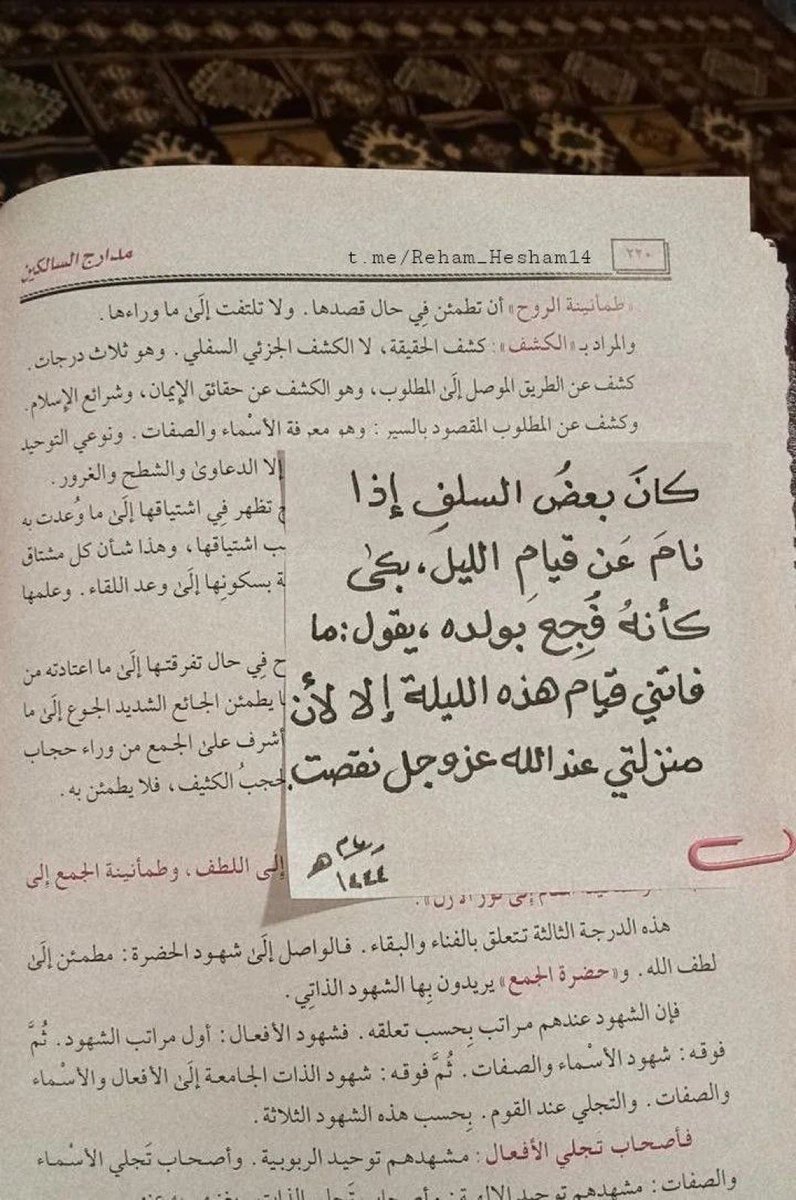 مدارج السالكين
t.me/Reham_Hesham14
٢٢٠
«طمأنينة الروح» أن تطمئن فِي حال قصدها. ولا تلتفت إلَىٰ ما وراءها.
والمراد بـ«الكشف»: كشف الحقيقة، لا الكشف الجزئي السفلي. وهو ثلاث درجات.
كشف عن الطريق الموصل إلَىٰ المطلوب، وهو الكشف عن حقائق الإيمان، وشرائع الإسلام.
وكشف عن المطلوب المقصود بالسير: وهو معرفة الأسْماء والصفات. ونوعي التوحيد
إلا الدعاوىٰ والشطح والغرور.
تظهر فِي اشتياقها إلَىٰ ما وُعدت به
اشتياقها، وهذا شأن كل مشتاق
بسكونِها إلَىٰ وعد اللقاء. وعلمها
فِي حال تفرقتها إلَىٰ ما اعتادته من
يطمئن الجائع الشديد الجوع إلَىٰ ما
أشرف علىٰ الجمع من وراء حجاب
الكثيف، فلا يطمئن به.
كانَ بعضُ السلفِ إذا
نامَ عَن قيامِ الليل، بكىٰ
كأنهُ فُجِعَ بولده، يقول: ما
فاتني قيام هذه الليلة إلا لأن
منزلتي عند الله عز وجل نقصت.
١٤٤٤ هـ
إلَى اللطف، وطمأنينة الجمع إلى
هذه الدرجة الثالثة تتعلق بالفناء والبقاء. فالواصل إلَىٰ شهود الحضرة: مطمئن إلَىٰ
لطف الله. و«حضرة الجمع» يريدون بِها الشهود الذاتِي.
فإن الشهود عندهم مراتب بِحسب تعلقه. فشهود الأفعال: أول مراتب الشهود. ثُمَّ
فوقه: شهود الأسْماء والصفات. ثُمَّ فوقه: شهود الذات الجامعة إلَىٰ الأفعال والأسْماء
والصفات. والتجلي عند القوم. بِحسب هذه الشهود الثلاثة.
فأصحاب تجلي الأفعال: مشهدهم توحيد الربوبية. وأصحاب تَجلي الأسْماء
والصفات: مشهدهم توحيد